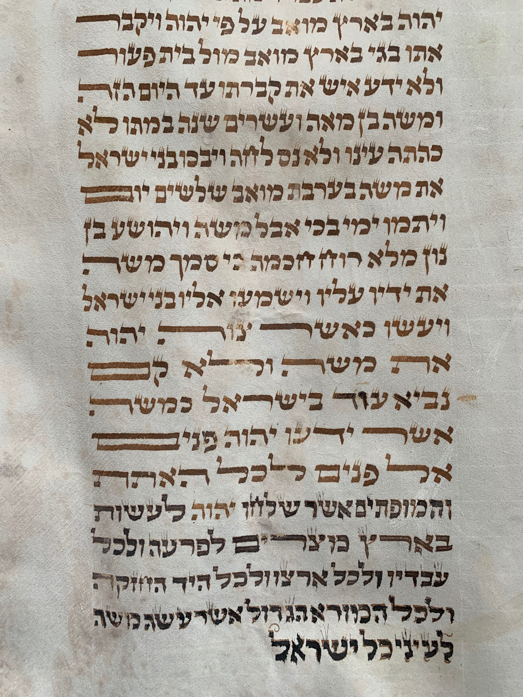 יהוה בארץ מואב על פי יהוה ויקבר
אתו בגי בארץ מואב מול בית פעור
ולא ידע איש את קברתו עד היום הזה
ומשה בן מאה ועשרים שנה במתו לא
כהתה עינו ולא נס לחה ויבכו בני ישראל
את משה בערבת מואב שלשים יום
ויתמו ימי בכי אבל משה ויהושע בן
נון מלא רוח חכמה כי סמך משה
את ידיו עליו וישמעו אליו בני ישראל
ויעשו כאשר צוה יהוה
את משה ולא קם
נביא עוד בישראל כמשה
אשר ידעו יהוה פנים
אל פנים לכל האתת
והמופתים אשר שלחו יהוה לעשות
בארץ מצרים לפרעה ולכל
עבדיו ולכל ארצו ולכל היד החזקה
ולכל המורא הגדול אשר עשה משה
לעיני כל ישראל